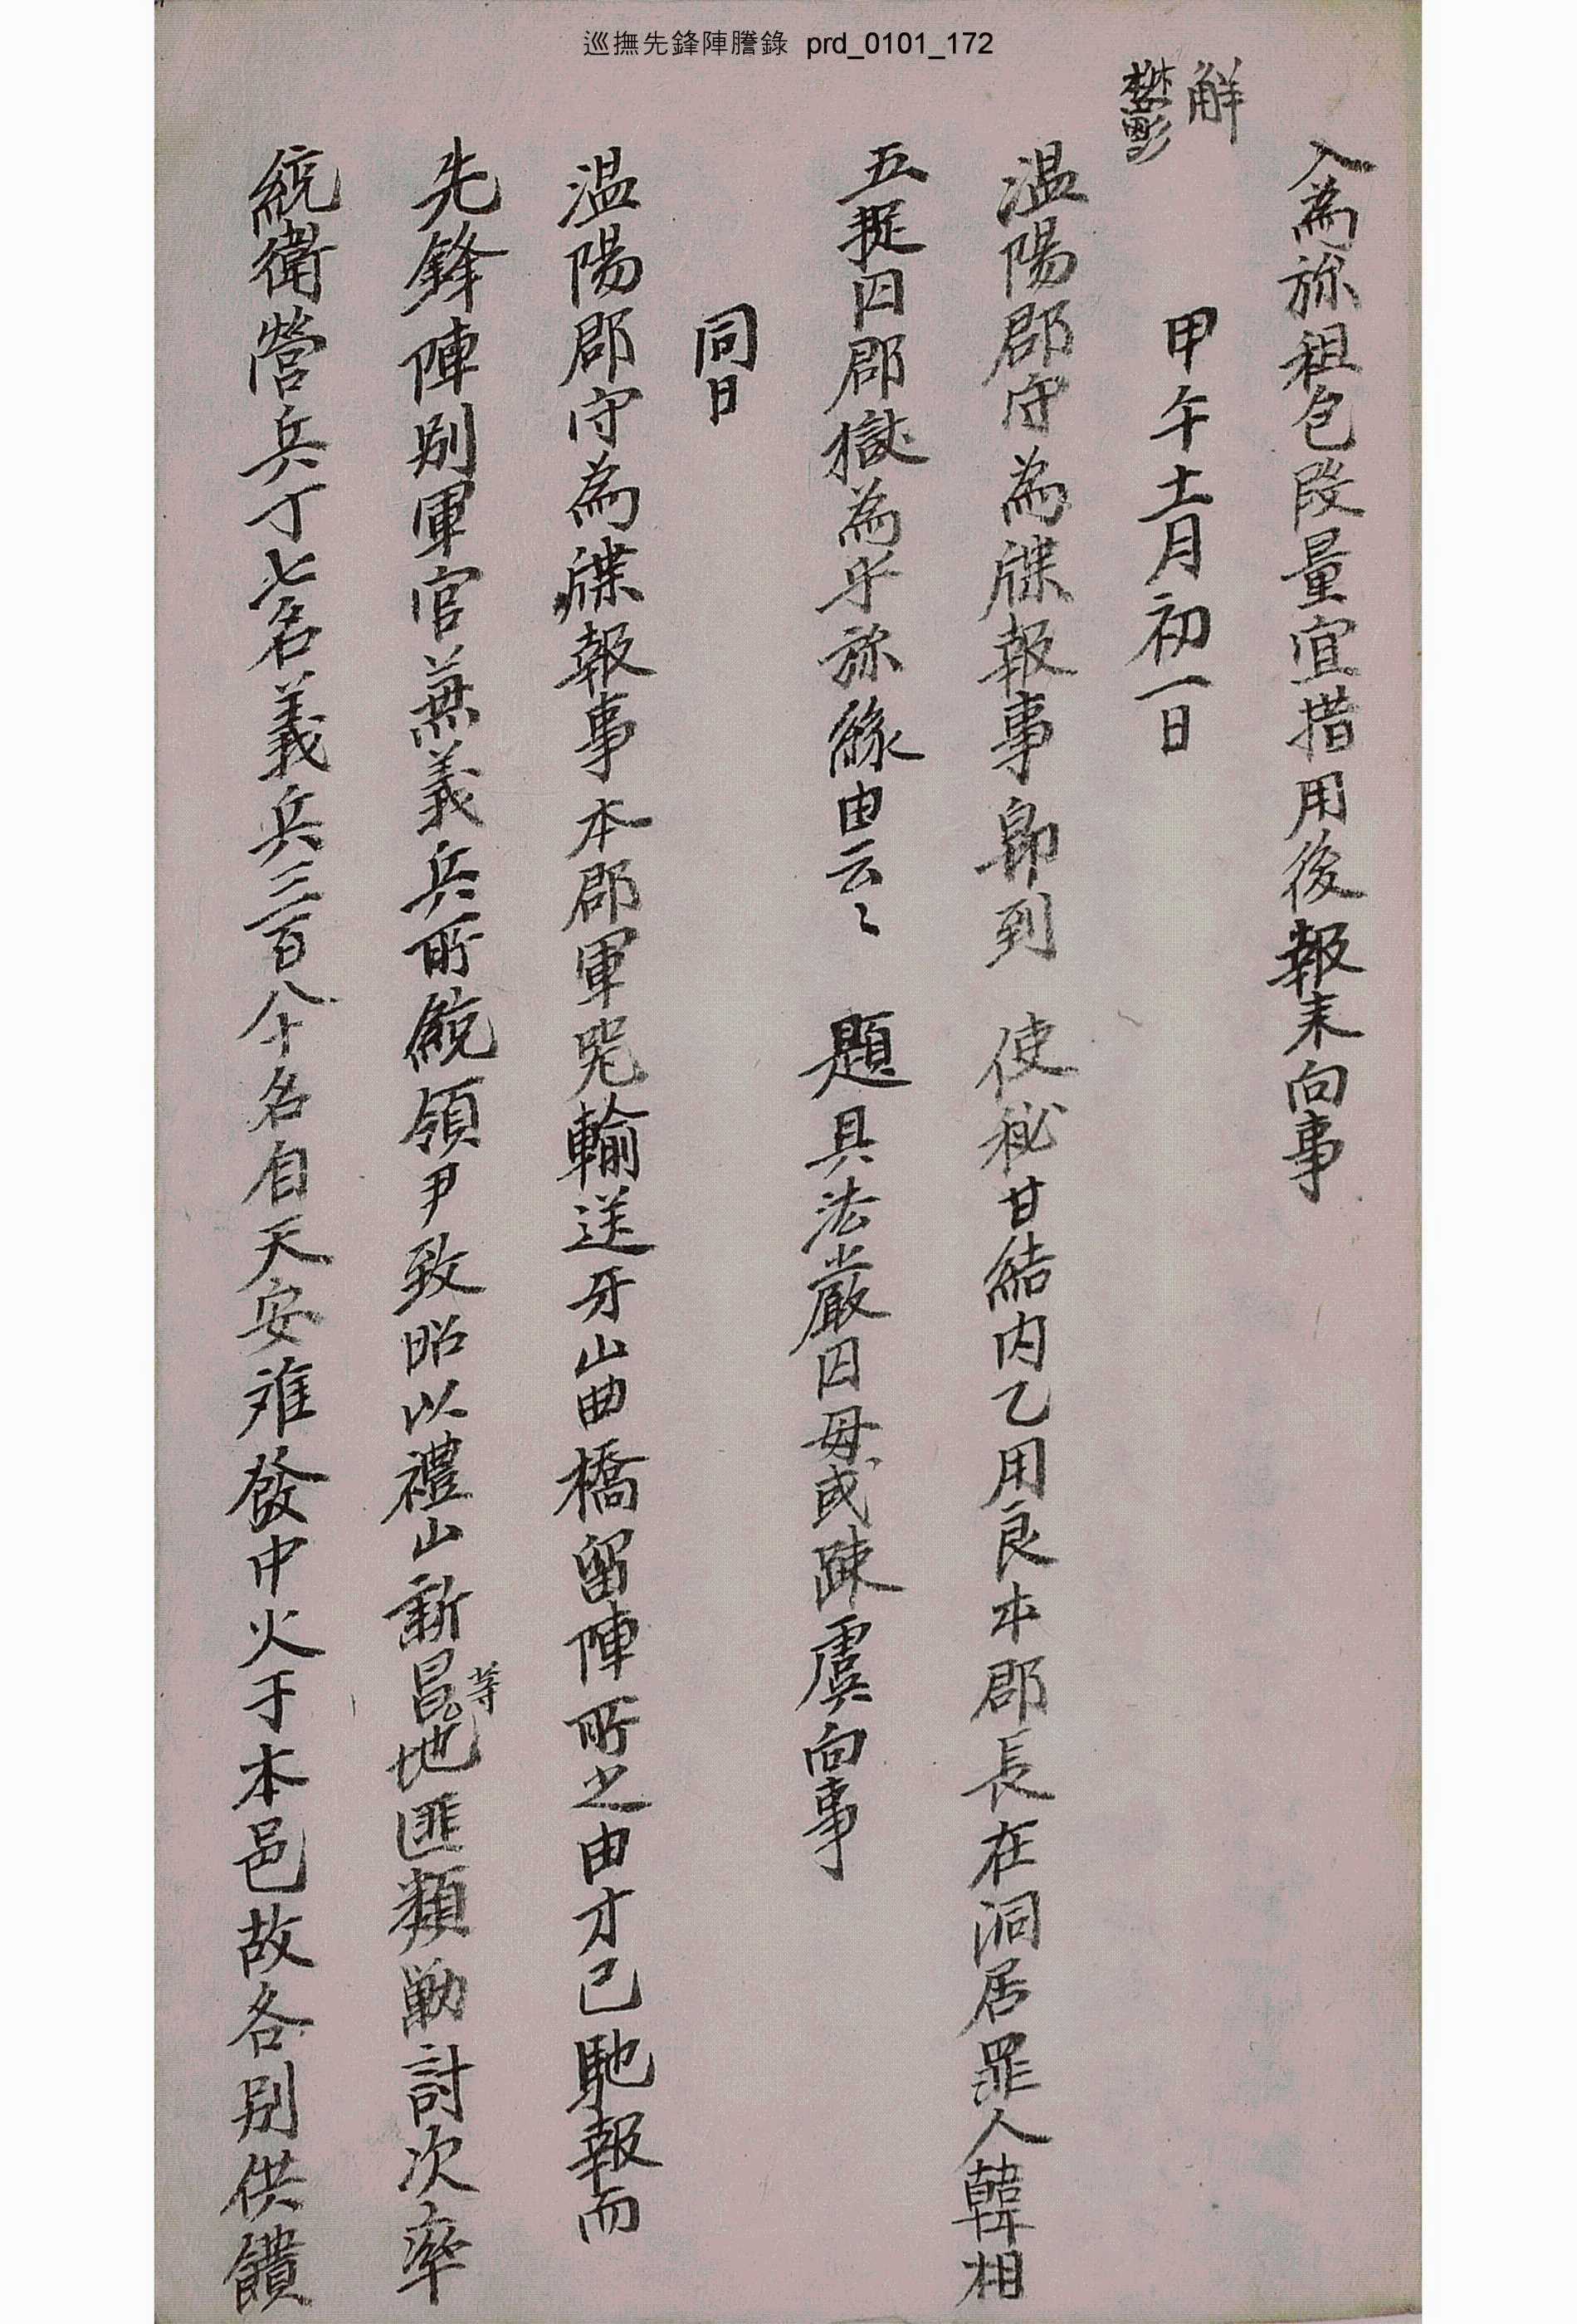 巡撫先鋒陣謄錄 prd_0101_172
入為旀租包段量宜措用後報来向事
解
欝
甲午十一月初一日
温陽郡守為牒報事卽到 使秘甘結内乙用良本郡長在洞居罪人韓相
五捉囚郡獄為乎旀緣由云〻 題 具法嚴囚毋或疎虞向事
同日
温陽郡守為牒報事本郡軍器輸送牙山曲橋留陣所之由才已馳報而
先鋒陣別軍官兼義兵所統領尹致昭以禮山新昌等地匪類勦討次率
統衛營兵丁七名義兵三百八十名自天安離發中火于本邑故各別供饋